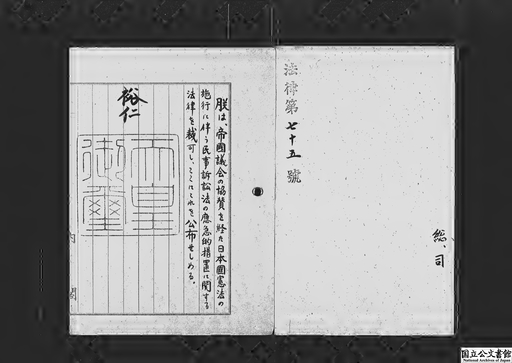 法律第七十五號
総、司
朕は、帝國議会の協賛を経た日本國憲法の
施行に伴う民事訴訟法の應急的措置に関する
法律を裁可し、ここにこれを公布せしめる。
裕仁
天皇
御璽
内閣
国立公文書館
National Archives of Japan